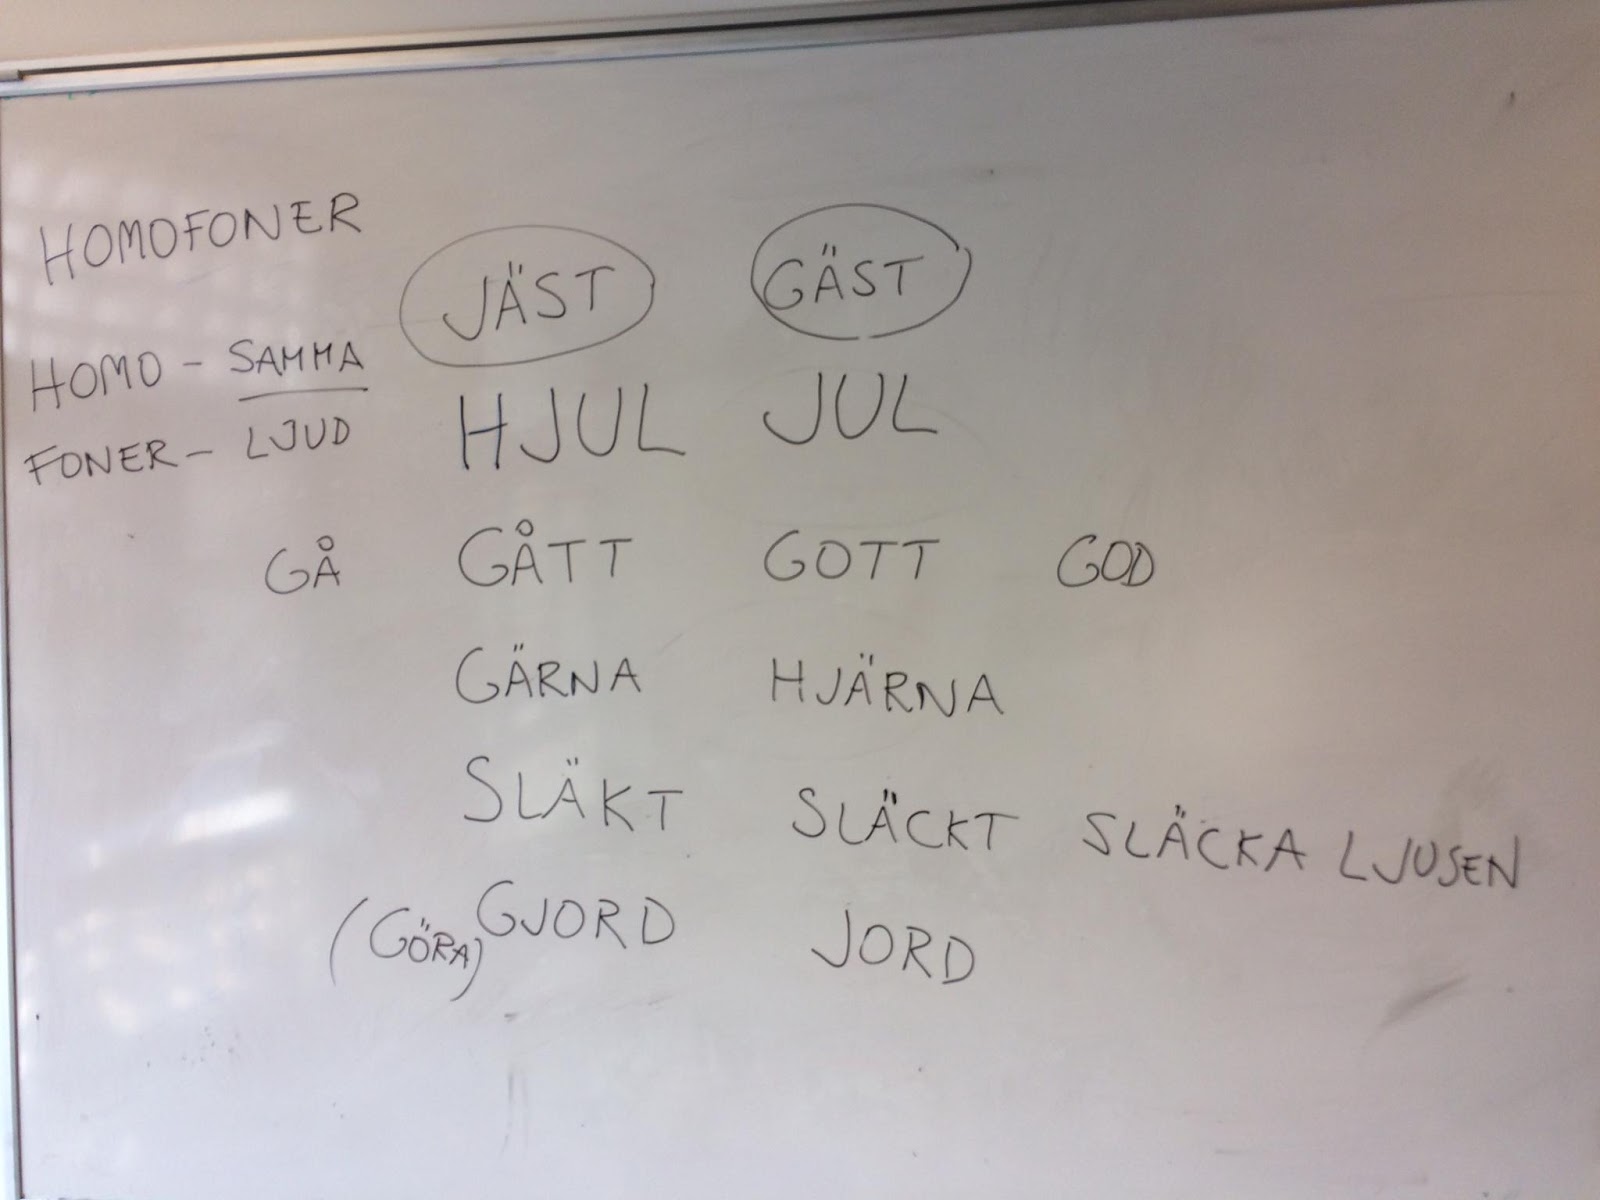 HOMOFONER
JÄST GÄST
HOMO - SAMMA
HJUL JUL
FONER - LJUD
GÅ GÅTT GOTT GOD
GÄRNA HJÄRNA
SLÄKT SLÄCKT SLÄCKA LJUSEN
(GÖRA) GJORD JORD